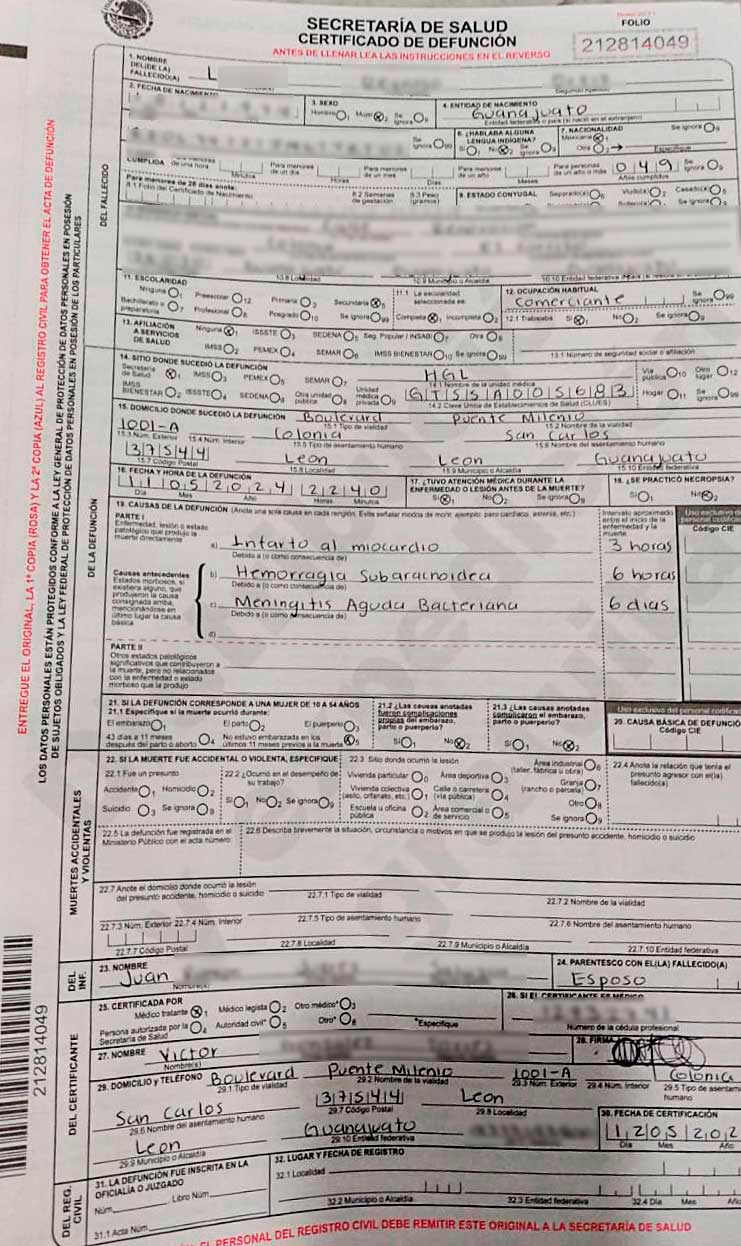 SECRETARÍA DE SALUD
CERTIFICADO DE DEFUNCIÓN
ANTES DE LLENAR LEA LAS INSTRUCCIONES EN EL REVERSO
FOLIO
212814049
ENTREGUE EL ORIGINAL, LA 1ª COPIA (ROSA) Y LA 2ª COPIA (AZUL) AL REGISTRO CIVIL PARA OBTENER EL ACTA DE DEFUNCIÓN
LOS DATOS PERSONALES ESTÁN PROTEGIDOS CONFORME A LA LEY GENERAL DE PROTECCIÓN DE DATOS PERSONALES EN POSESIÓN
DE SUJETOS OBLIGADOS Y LA LEY FEDERAL DE PROTECCIÓN DE DATOS PERSONALES EN POSESIÓN DE LOS PARTICULARES
DEL FALLECIDO
1. NOMBRE
DEL(DE LA)
FALLECIDO(A) L
2. FECHA DE NACIMIENTO
3. SEXO
Hombre 1 Mujer 2 Se ignora 9
4. ENTIDAD DE NACIMIENTO
Guanajuato
Entidad federativa o país (si nació en el extranjero)
Se ignora 99
6. ¿HABLABA ALGUNA
LENGUA INDÍGENA?
Sí 1 No 2 Se ignora 9
7. NACIONALIDAD Se ignora 9
Mexicana 1
Otra 2 Especifique
CUMPLIDA
Para menores de una hora Minutos
Para menores de un día Horas
Para menores de un mes Días
Para menores de un año Meses
Para personas de un año o más 049 Años cumplidos
Se ignora 9
Para menores de 28 días anote:
8.1 Folio del Certificado de Nacimiento
8.2 Semanas de gestación
8.3 Peso (gramos)
9. ESTADO CONYUGAL Separado(a) 6 Viudo(a) 2 Casado(a) 5
Se ignora 9
10.8 Localidad 10.9 Municipio o Alcaldía 10.10 Entidad federativa
11. ESCOLARIDAD
Ninguna 1 Preescolar 12 Primaria 3 Secundaria 5
Bachillerato o preparatoria 7 Profesional 8 Posgrado 10 Se ignora 99
11.1 La escolaridad seleccionada es:
Completa 1 Incompleta 2
12. OCUPACIÓN HABITUAL
Comerciante
Se ignora 99
12.1 Trabajaba Sí 1 No 2 Se ignora 9
13. AFILIACIÓN
A SERVICIOS
DE SALUD
Ninguna 1 ISSSTE 3 SEDENA 5 Seg. Popular / INSABI 7 Otra 8
IMSS 2 PEMEX 4 SEMAR 6 IMSS BIENESTAR 10 Se ignora 99
13.1 Número de seguridad social o afiliación
DE LA DEFUNCIÓN
14. SITIO DONDE SUCEDIÓ LA DEFUNCIÓN
Secretaría de Salud 1 IMSS 3 PEMEX 5 SEMAR 7
IMSS BIENESTAR 2 ISSSTE 4 SEDENA 6 Otra unidad pública 8 Unidad médica privada 9
HGL
14.1 Nombre de la unidad médica
GTSSA005683
14.2 Clave Única de Establecimientos de Salud (CLUES)
Vía pública 10 Otro lugar 12
Hogar 11 Se ignora 99
15. DOMICILIO DONDE SUCEDIÓ LA DEFUNCIÓN Boulevard Puente Milenio
15.1 Tipo de vialidad 15.2 Nombre de la vialidad
1001-A Colonia San Carlos
15.3 Núm. Exterior 15.4 Núm. Interior 15.5 Tipo de asentamiento humano 15.6 Nombre del asentamiento humano
37544 Leon Leon Guanajuato
15.7 Código Postal 15.8 Localidad 15.9 Municipio o Alcaldía 15.10 Entidad federativa
16. FECHA Y HORA DE LA DEFUNCIÓN
11052024 2240
Día Mes Año Horas Minutos
17. ¿TUVO ATENCIÓN MÉDICA DURANTE LA
ENFERMEDAD O LESIÓN ANTES DE LA MUERTE?
Sí 1 No 2 Se ignora 9
18. ¿SE PRACTICÓ NECROPSIA?
Sí 1 No 2
19. CAUSAS DE LA DEFUNCIÓN (Anote una sola causa en cada renglón. Evite señalar modos de morir, ejemplo: paro cardiaco, astenia, etc.)
PARTE I
Enfermedad, lesión o estado
patológico que produjo la
muerte directamente
Intervalo aproximado
entre el inicio de la
enfermedad y la
muerte
Uso exclusivo del
personal codificador
Código CIE
a) Infarto al miocardio 3 horas
Debido a (o como consecuencia de)
Causas antecedentes
Estados morbosos, si
existiera alguno, que
produjeron la causa
consignada arriba,
mencionándose en
último lugar la causa
básica
b) Hemorragia Subaracnoidea 6 horas
Debido a (o como consecuencia de)
c) Meningitis Aguda Bacteriana 6 dias
Debido a (o como consecuencia de)
d)
PARTE II
Otros estados patológicos
significativos que contribuyeron a
la muerte, pero no relacionados
con la enfermedad o estado
morboso que la produjo
21. SI LA DEFUNCIÓN CORRESPONDE A UNA MUJER DE 10 A 54 AÑOS
21.1 Especifique si la muerte ocurrió durante:
El embarazo 1 El parto 2 El puerperio 3
43 días a 11 meses después del parto o aborto 4 No estuvo embarazada en los últimos 11 meses previos a la muerte 5
21.2 ¿Las causas anotadas
fueron complicaciones
propias del embarazo,
parto o puerperio?
Sí 1 No 2
21.3 ¿Las causas anotadas
complicaron el embarazo,
parto o puerperio?
Sí 1 No 2
Uso exclusivo del personal codificador
20. CAUSA BÁSICA DE DEFUNCIÓN
Código CIE
MUERTES ACCIDENTALES
Y VIOLENTAS
22. SI LA MUERTE FUE ACCIDENTAL O VIOLENTA, ESPECIFIQUE
22.1 Fue un presunto
Accidente 1 Homicidio 2
Suicidio 3 Se ignora 9
22.2 ¿Ocurrió en el desempeño de
su trabajo?
Sí 1 No 2 Se ignora 9
22.3 Sitio donde ocurrió la lesión
Vivienda particular 0 Área deportiva 3 Área industrial (taller, fábrica u obra) 6
Vivienda colectiva (asilo, orfanato, etc.) 1 Calle o carretera (vía pública) 4 Granja (rancho o parcela) 7
Escuela u oficina pública 2 Área comercial o de servicio 5 Otro 8
Se ignora 9
22.4 Anote la relación que tenía el
presunto agresor con el(la)
fallecido(a)
22.5 La defunción fue registrada en el
Ministerio Público con el acta número:
22.6 Describa brevemente la situación, circunstancia o motivos en que se produjo la lesión del presunto accidente, homicidio o suicidio
22.7 Anote el domicilio donde ocurrió la lesión
del presunto accidente, homicidio o suicidio
22.7.1 Tipo de vialidad 22.7.2 Nombre de la vialidad
22.7.3 Núm. Exterior 22.7.4 Núm. Interior 22.7.5 Tipo de asentamiento humano 22.7.6 Nombre del asentamiento humano
22.7.7 Código Postal 22.7.8 Localidad 22.7.9 Municipio o Alcaldía 22.7.10 Entidad federativa
DEL INF.
23. NOMBRE
Juan
Nombre(s)
24. PARENTESCO CON EL(LA) FALLECIDO(A)
Esposo
DEL CERTIFICANTE
25. CERTIFICADA POR
Médico tratante 1 Médico legista 2 Otro médico* 3
Persona autorizada por la Secretaría de Salud 4 Autoridad civil* 5 Otro* 6 *Especifique
26. SI EL CERTIFICANTE ES MÉDICO
Número de la cédula profesional
27. NOMBRE Victor
Nombre(s)
28. FIRMA
29. DOMICILIO Y TELÉFONO Boulevard Puente Milenio 1001-A Colonia
29.1 Tipo de vialidad 29.2 Nombre de la vialidad 29.3 Núm. Exterior 29.4 Núm. Interior 29.5 Tipo de asentamiento humano
San Carlos 37544 Leon
29.6 Nombre del asentamiento humano 29.7 Código Postal 29.8 Localidad
Leon Guanajuato
29.9 Municipio o Alcaldía 29.10 Entidad federativa
30. FECHA DE CERTIFICACIÓN
1205202
Día Mes Año
DEL REG. CIVIL
31. LA DEFUNCIÓN FUE INSCRITA EN LA
OFICIALÍA O JUZGADO
Núm. Libro Núm.
31.1 Acta Núm.
32. LUGAR Y FECHA DE REGISTRO
32.1 Localidad
32.2 Municipio o Alcaldía 32.3 Entidad federativa 32.4 Día Mes Año
212814049
EL PERSONAL DEL REGISTRO CIVIL DEBE REMITIR ESTE ORIGINAL A LA SECRETARÍA DE SALUD